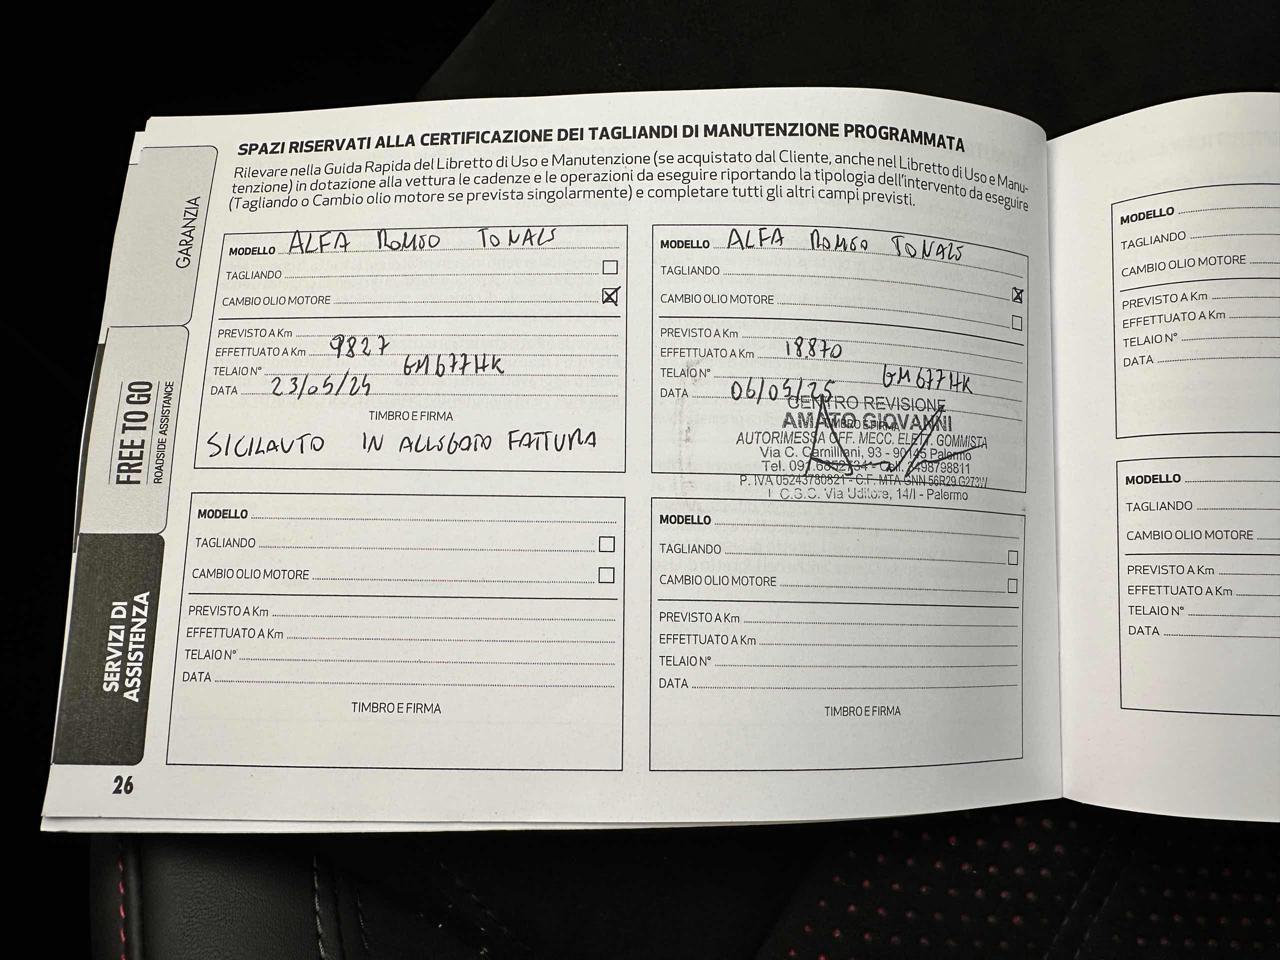 SPAZI RISERVATI ALLA CERTIFICAZIONE DEI TAGLIANDI DI MANUTENZIONE PROGRAMMATA
Rilevare nella Guida Rapida del Libretto di Uso e Manutenzione (se acquistato dal Cliente, anche nel Libretto di Uso e Manu-
tenzione) in dotazione alla vettura le cadenze e le operazioni da eseguire riportando la tipologia dell'intervento da eseguire
(Tagliando o Cambio olio motore se prevista singolarmente) e completare tutti gli altri campi previsti.
GARANZIA
FREE TO GO
ROADSIDE ASSISTANCE
SERVIZI DI
ASSISTENZA
26
MODELLO ALFA ROMEO TONALE
TAGLIANDO
CAMBIO OLIO MOTORE
PREVISTO A Km
EFFETTUATO A Km 9827
TELAIO N° GM677HK
DATA 23/05/24
TIMBRO E FIRMA
SICILAUTO IN ALLEGATO FATTURA
MODELLO ALFA ROMEO TONALE
TAGLIANDO
CAMBIO OLIO MOTORE
PREVISTO A Km
EFFETTUATO A Km 18.870
TELAIO N° GM677HK
DATA 06/05/25
TIMBRO E FIRMA
CENTRO REVISIONE
AMATO GIOVANNI
AUTORIMESSA OFF. MECC. ELETT. GOMMISTA
Via C. Camilliani, 93 - 90145 Palermo
Tel. Cell. 3498798811
P. IVA 05243780821 - C.F. MTA GNN
C.S.C. Via Uditore, 14/I - Palermo
MODELLO
TAGLIANDO
CAMBIO OLIO MOTORE
PREVISTO A Km
EFFETTUATO A Km
TELAIO N°
DATA
TIMBRO E FIRMA
MODELLO
TAGLIANDO
CAMBIO OLIO MOTORE
PREVISTO A Km
EFFETTUATO A Km
TELAIO N°
DATA
TIMBRO E FIRMA
MODELLO
TAGLIANDO
CAMBIO OLIO MOTORE
PREVISTO A Km
EFFETTUATO A Km
TELAIO N°
DATA
MODELLO
TAGLIANDO
CAMBIO OLIO MOTORE
PREVISTO A Km
EFFETTUATO A Km
TELAIO N°
DATA